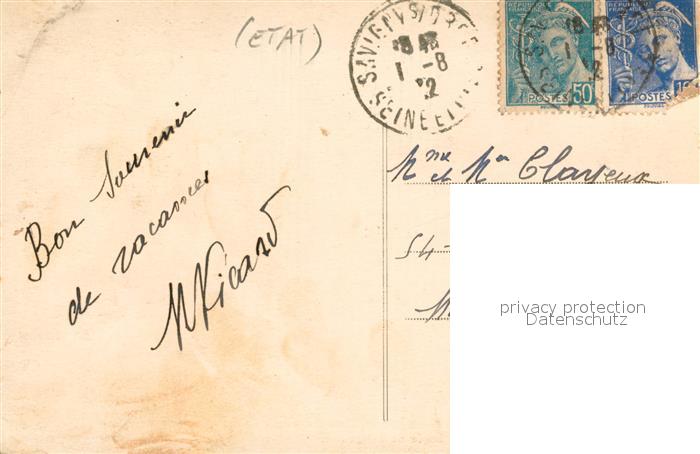 (ETAT)
SAVIGNY S/ ORGE
1-8
SEINE ET
REPUBLIQUE FRANÇAISE
50
POSTES
REPUBLIQUE FRANÇAISE
POSTES
Bon Souvenir
de vacances
Mme et Mr Clayeux
54-
privacy protection
Datenschutz